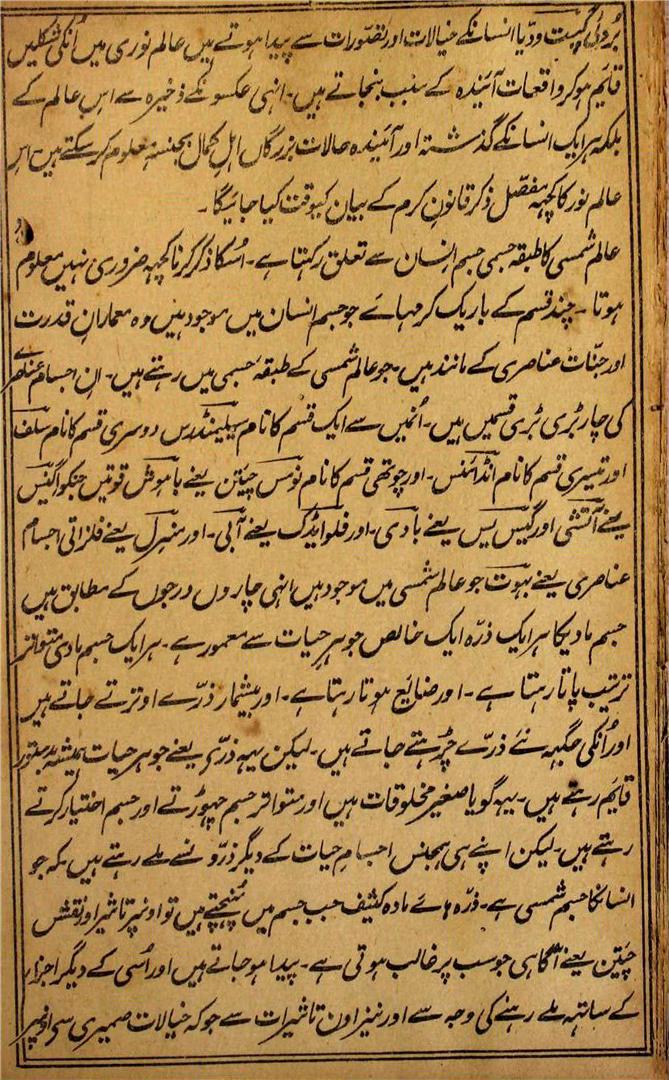 بُروئی گپت ودیا انسانکے خیالات اور تصوّرات سے پیدا ہوتے ہیں عالم نوری میں اُنکی شکلیں
قایٔم ہو کر واقعات آئندہ کے سبب بنجاتے ہیں۔ انہی عکسونکے ذخیرہ سے اس عالم کے
بلکہ ہر ایک انسانکے گذشتہ اور آئیندہ حالات بزرگان اہلِ کمال بجنسہٖ معلوم کر سکتے ہیں۔ اس
عالم نور کا کچہہ مفصّل ذکر قانونِ کرم کے بیان کیوقت کیا جائیگا۔
عالم شمسی کا طبقہ جسمی جسم انسان سے تعلق رکہتا ہے۔ اسکا ذکر کرنا کچہہ ضروری نہیں معلوم
ہوتا۔ چند قسم کے باریک کرمہائے جو جسم انسان میں موجود ہیں وہ معماران قدرت
اور جنّات عناصری کے مانند ہیں۔ جو عالم شمسی کے طبقۂ جسمی میں رہتے ہیں۔ ان اجسام عناصری
کی چار بڑی بڑی قسمیں ہیں۔ اُنمیں سے ایک قسم کا نام سیلمینڈرس دوسری قسم کا نام سلف
اور تیسری قسم کا نام انڈائنس۔ اور چوتھی قسم کا نام نومس چیتن یعنے باہوش قوتیں جنکو اگنیس
یعنے آتشی اور گیس یس یعنے بادی۔ اور فلوایڈک یعنے آبی۔ اور منرل یعنے فلزاتی اجسام
عناصری یعنے بہوت جو عالم شمسی میں موجود ہیں انہی چاروں درجوں کے مطابق ہیں
جسم مادیکا ہر ایک ذرّہ ایک خالص جوہر حیات سے معمور ہے۔ ہر ایک جسم مادی متواتر
ترتیب پاتا رہتا ہے۔ اور ضایٔع ہوتا رہتا ہے۔ اور بیشمار ذرّے اوترتے جاتے ہیں
اور اُنکی جگہہ نئے ذرے چڑہتے جاتے ہیں۔ لیکن یہہ ذرّے یعنے جوہر حیات ہمیشہ بدستور
قایٔم رہتے ہیں۔ یہہ گویا صغیر مخلوقات ہیں اور متواتر جسم چہوڑتے اور جسم اختیار کرتے
رہتے ہیں۔ لیکن اپنے ہی ہمجنس اجسام حیات کے دیگر ذرّونسے ملے رہتے ہیں۔ کہ جو
انسانکا جسم شمسی ہے۔ ذرّہ ہائے مادہ کثیف جب جسم میں پُہنچتے ہیں تو اونپر تاثیر اور نقش
چیتن یعنے آگاہی جو سب پر غالب ہوتی ہے۔ پیدا ہو جاتے ہیں اور اُسی کے دیگر اجزاء
کے ساتہہ ملے رہنے کی وجہ سے اور نیز اون تاثیرات سے جو کہ خیالات ضمیری سے اونپر